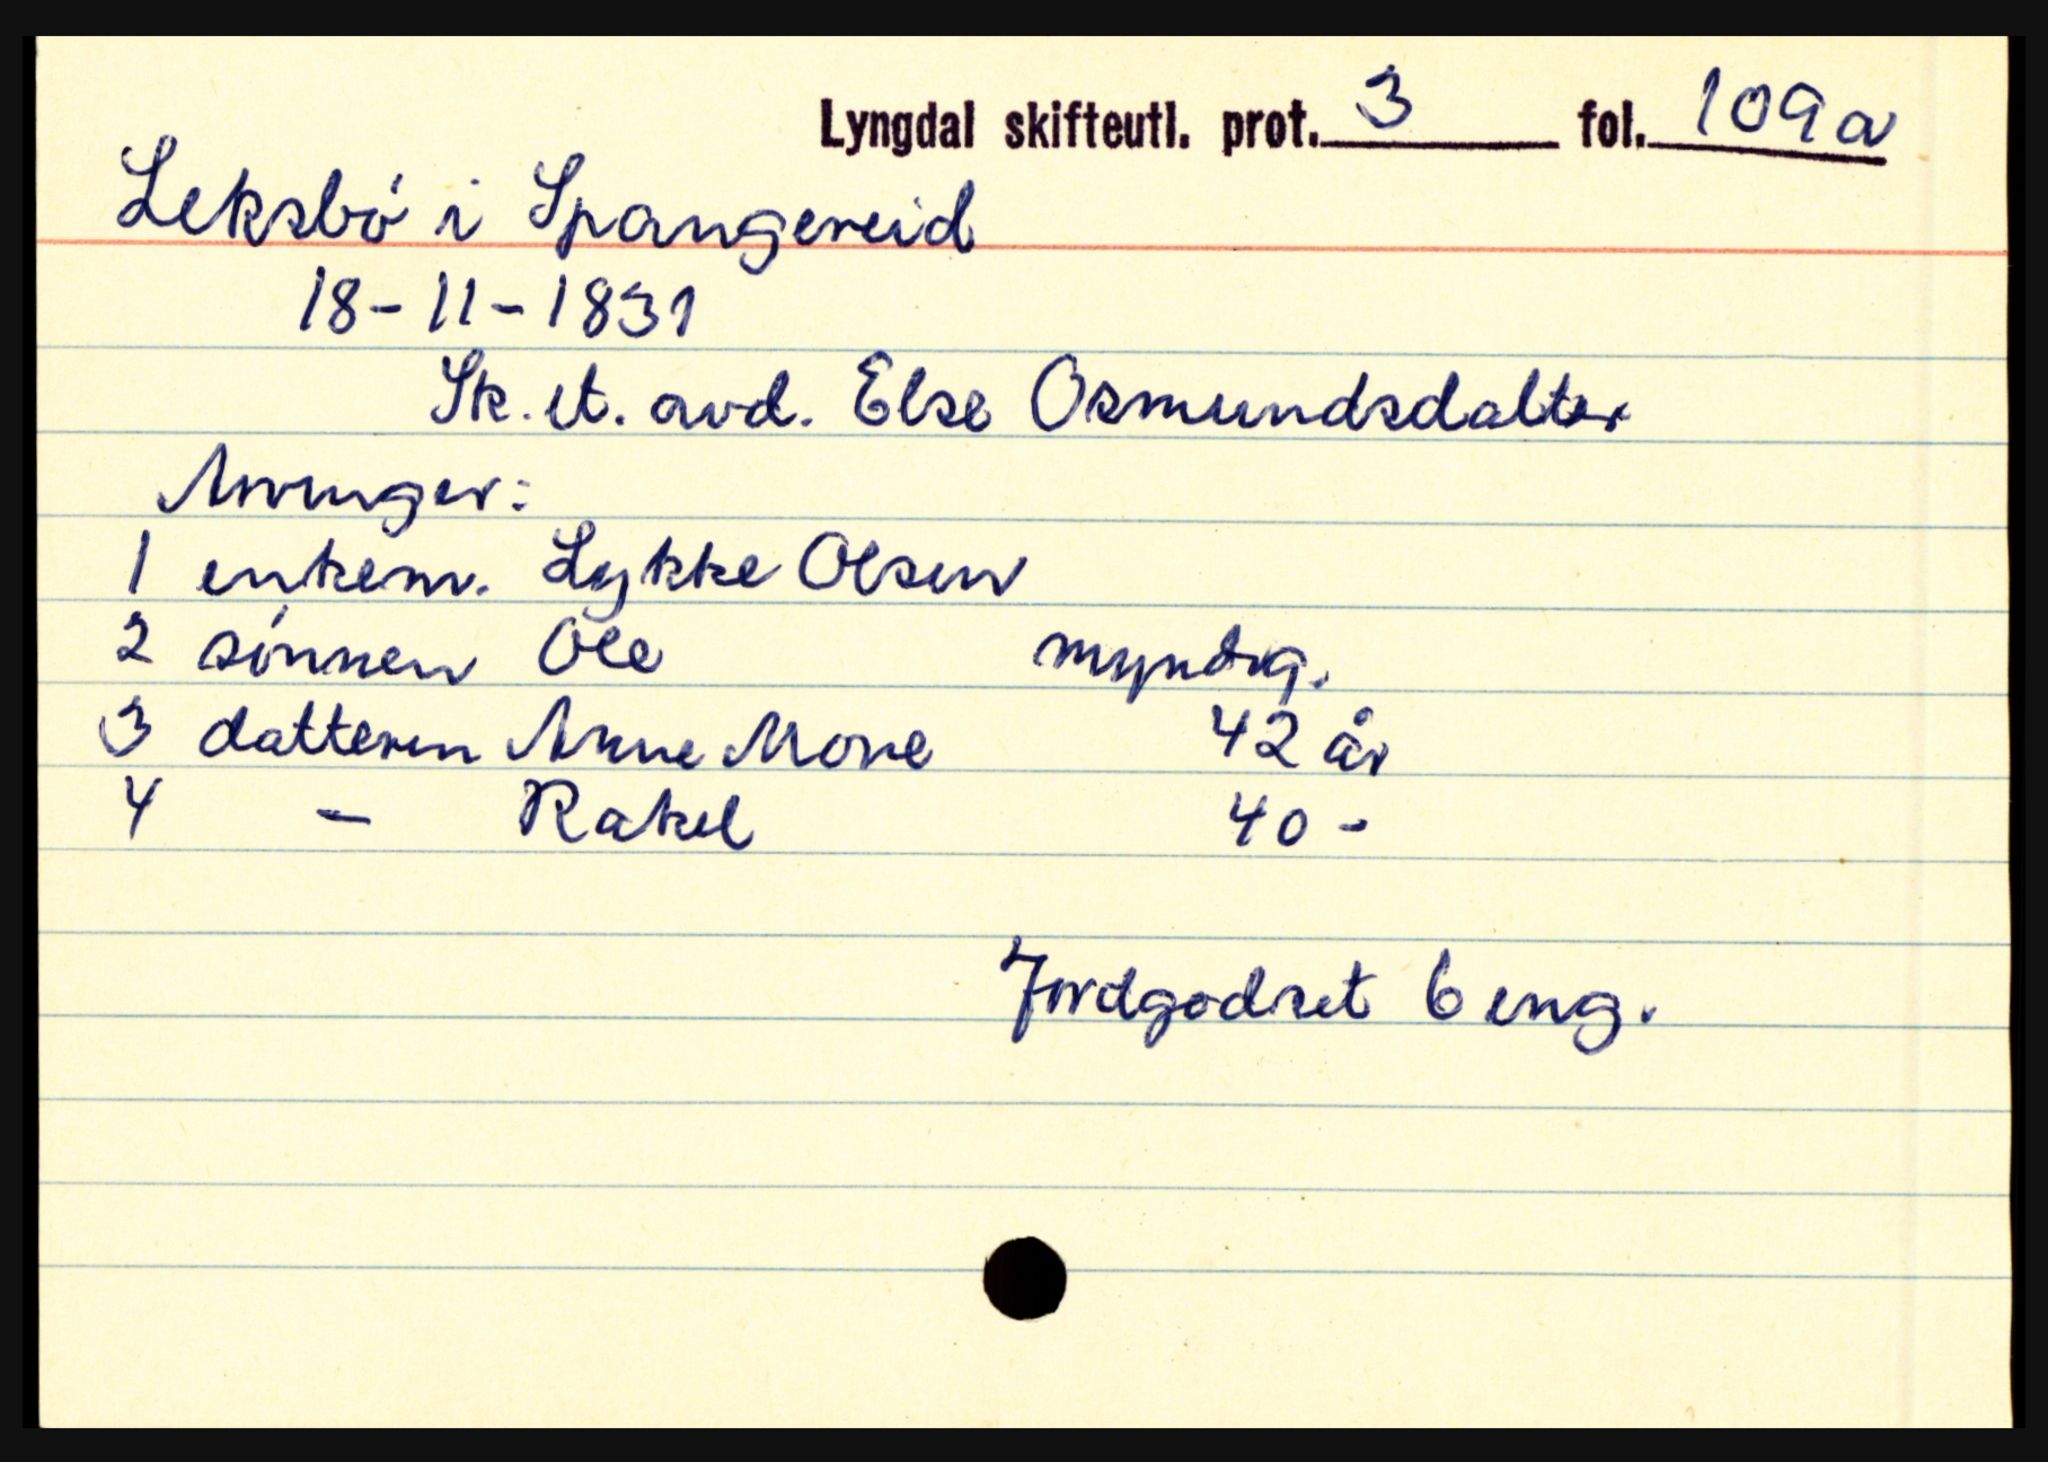 Lyngdal skifteutl. prot. 3 fol. 109a
Leksbø i Spangereid
18-11-1831
Sk. et. avd. Else Osmundsdatter
Arvinger:
1 enkem. Lykke Olsen
2 sønnen Ole myndig.
3 datteren Anne Mone 42 år
4 - Rakel 40 -
Jordgodset 6 eng.